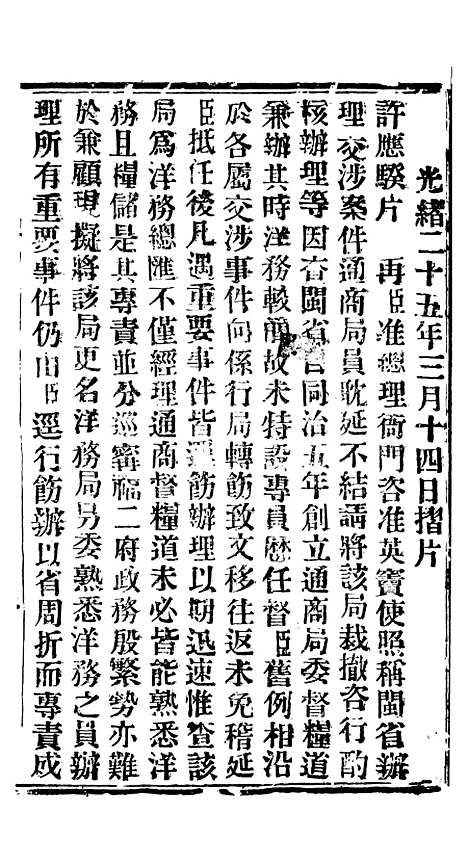 光緒二十五年三月十四日摺片
許應騤片　再臣准總理衙門咨准英竇使照稱閩省辦
理交涉案件通商局員耽延不結請將該局裁撤咨行酌
核辦理等因查閩省自同治五年創立通商局委督糧道
兼辦其時洋務較簡故未特設專員歷任督臣舊例相沿
於各屬交涉事件向係行局轉飭致文移往返未免稽延
臣抵任後凡遇重要事件皆逕飭辦理以期迅速惟查該
局為洋務總匯不僅經理通商督糧道未必皆能熟悉洋
務且糧儲是其專責並分巡寧福二府政務殷繁勢亦難
於兼顧現擬將該局更名洋務局另委熟悉洋務之員辦
理所有重要事件仍由臣逕行飭辦以省周折而專責成